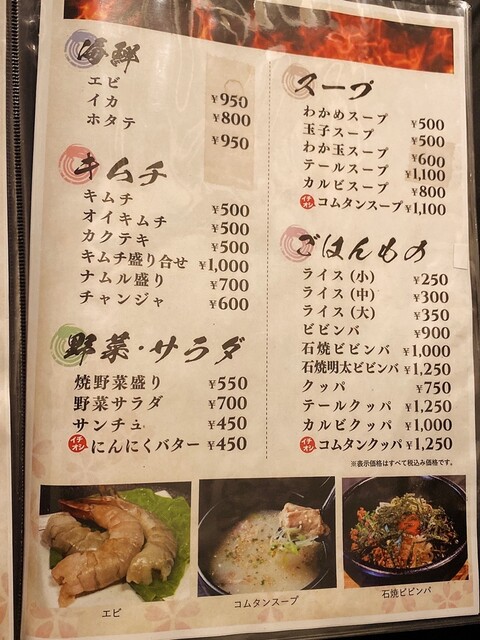 海鮮
エビ ¥950
イカ ¥800
ホタテ ¥950
キムチ
キムチ ¥500
オイキムチ ¥500
カクテキ ¥500
キムチ盛り合せ ¥1,000
ナムル盛り ¥700
チャンジャ ¥600
野菜・サラダ
焼野菜盛り ¥550
野菜サラダ ¥700
サンチュ ¥450
イチオシ にんにくバター ¥450
スープ
わかめスープ ¥500
玉子スープ ¥500
わか玉スープ ¥600
テールスープ ¥1,100
カルビスープ ¥800
イチオシ コムタンスープ ¥1,100
ごはんもの
ライス(小) ¥250
ライス(中) ¥300
ライス(大) ¥350
ビビンバ ¥900
石焼ビビンバ ¥1,000
石焼明太ビビンバ ¥1,250
クッパ ¥750
テールクッパ ¥1,250
カルビクッパ ¥1,000
イチオシ コムタンクッパ ¥1,250
※表示価格はすべて税込み価格です。
エビ
コムタンスープ
石焼ビビンバ